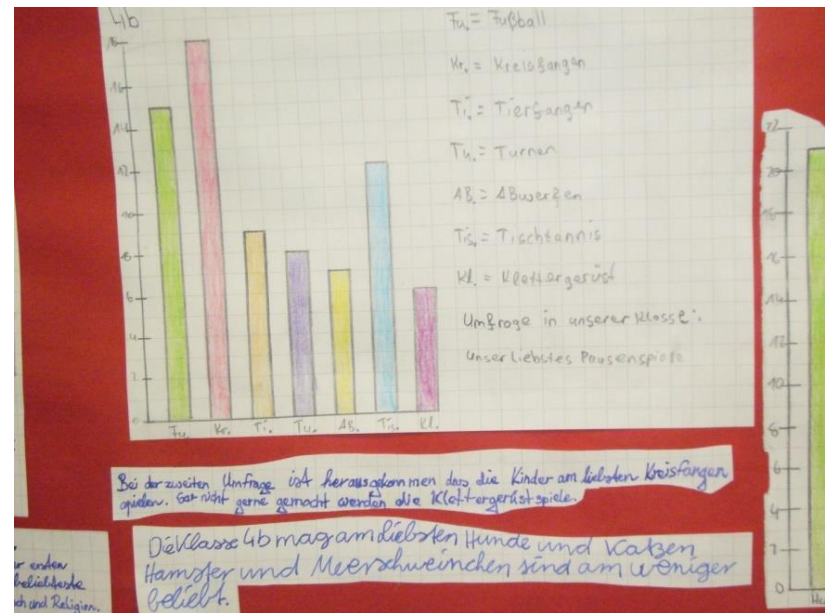 4b
Fu. = Fußball
Kr. = Kreisfangen
Ti. = Tierfangen
Tu. = Turnen
AB. = ABwerfen
Tis. = Tischtannis
Kl. = Klettergerüst
Umfroge in unserer Klosse:
unser liebstes Pausenspiele
18
16
14
12
10
8
6
4
2
0
Fu. Kr. Ti. Tu. AB. Tis. Kl.
Bei der zweiten Umfrage ist herausgekommen das die Kinder am liebsten Kreisfangen
spielen. Gar nicht gerne gemacht werden die Klettergerüstspiele.
Die Klasse 4b mag am Liebsten Hunde und Katzen
Hamster und Meerschweinchen sind am weniger
beliebt.
ersten
beliebteste
und Religion.
20
16
14
12
10
8
6
4
2
0